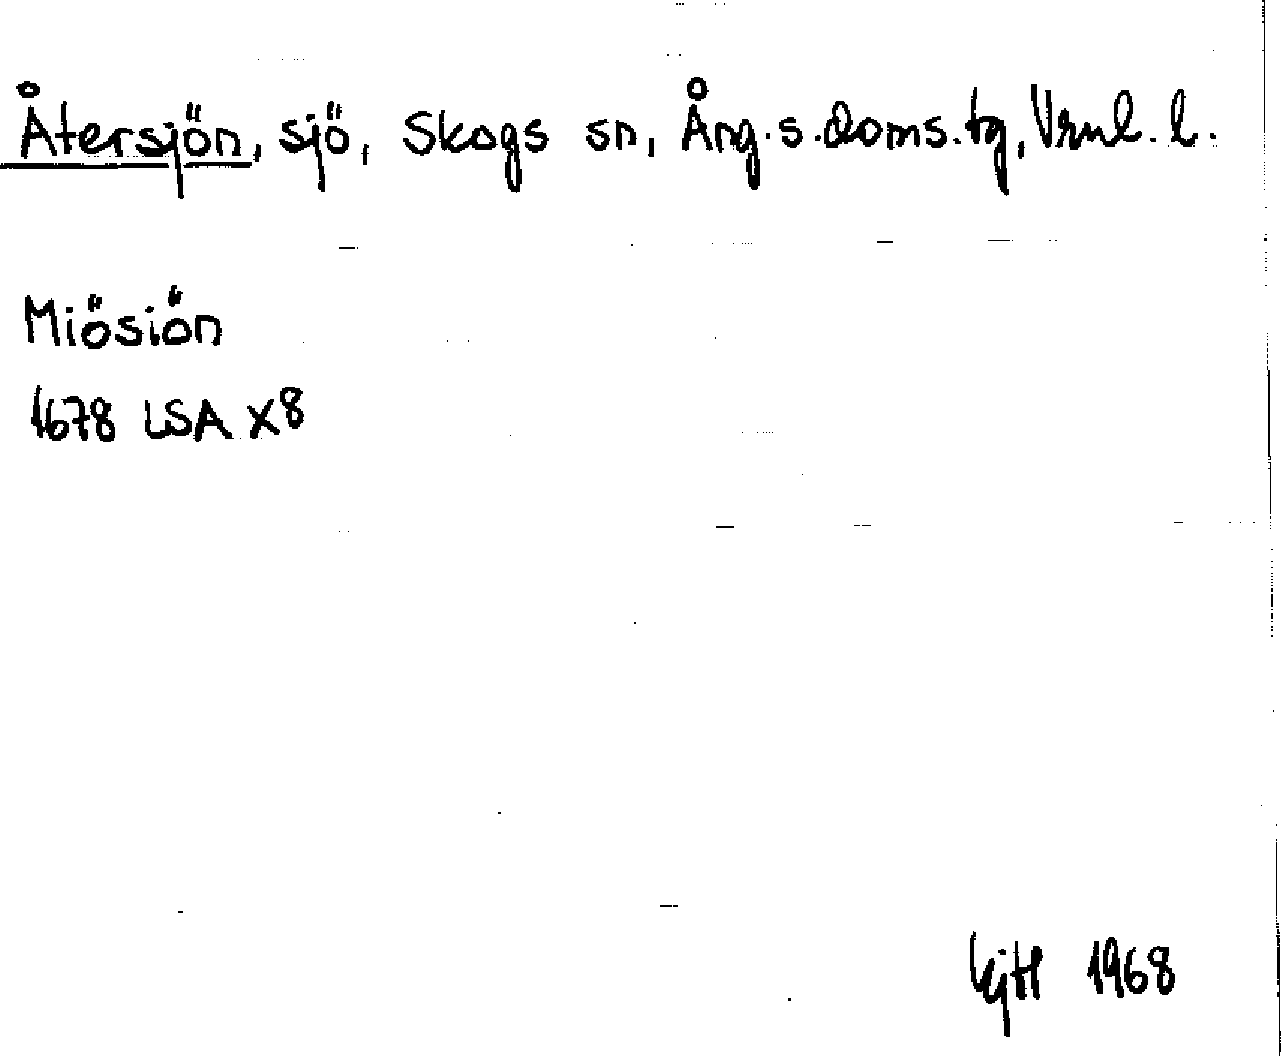 Återsjön, sjö, Skogs sn, Ång.s.doms.tg, Vrml.l.
Miösiön
1678 LSA X8
1968